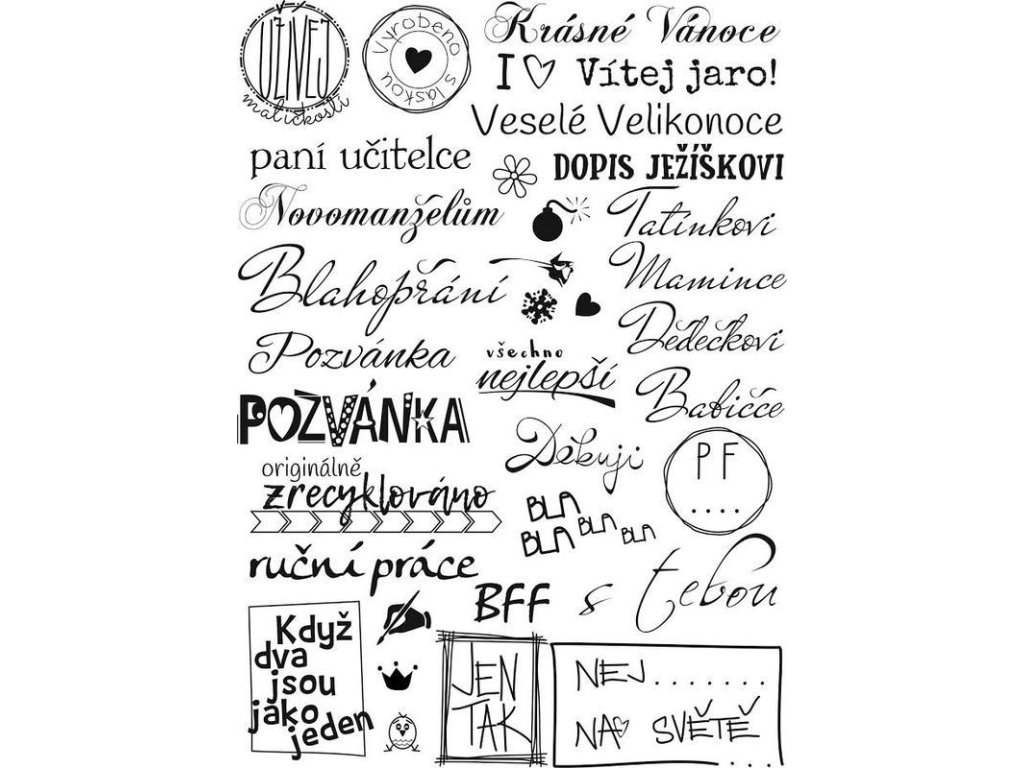 UŽÍVEJ
maličkostí
Vyrobeno s láskou
Krásné Vánoce
I Vítej jaro!
Veselé Velikonoce
paní učitelce
DOPIS JEŽÍŠKOVI
Novomanželům
Tatínkovi
Blahopřání
Mamince
Dědečkovi
Pozvánka
všechno
nejlepší
Babičce
POZVÁNKA
Děkuji
PF
....
originálně
zrecyklováno
BLA
BLA BLA BLA
ruční práce
BFF
s tebou
Když
dva
jsou
jako
jeden
JEN
TAK
NEJ.......
NA SVĚTĚ
...